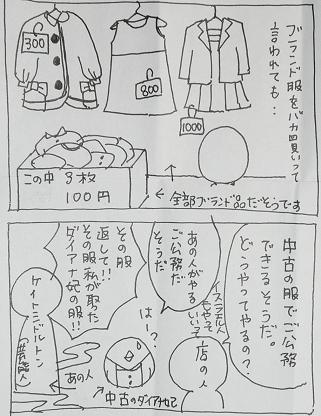 ブランド服をバカ買いって
言われても・・
300
800
1000
この中 3枚
100円
← 全部ブランド品だそうです
中古の服でご公務
できるそうだ。
どうやってやるの?
あの人がやる
ご公務だ
そうだ。
店の人
はー?
その服
返して!!
その服私が取った
ダイアナ妃の服!!
ケイトミドルトン
あの人